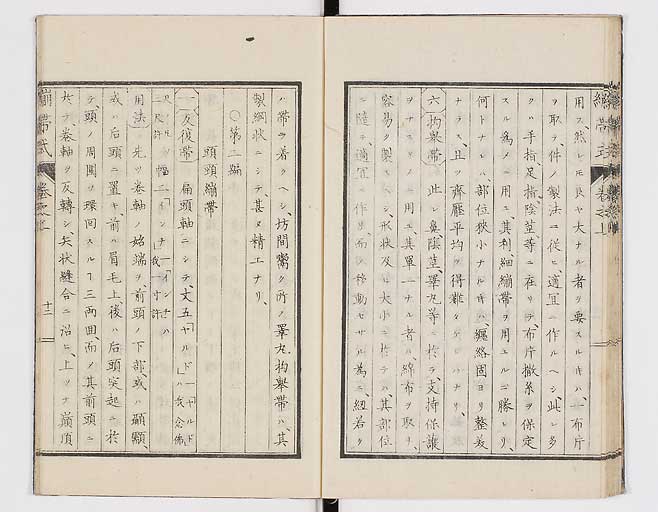 用ス然レ𪜈良ヤ大ナル者ヲ要スルキハ、一布片
ヲ取リ、件ノ製法ニ従ヒ、適宜ニ作ルヘシ、此レ多
クハ手指足指、陰莖等ニ在リテ、布片撒糸ヲ保定
スル為メニ用ユ、其利、細繃帯ヲ用ユルニ勝レリ、
何トナレハ、部位狭小ナルキハ、纏絡固ヨリ整美
ナラス、且ツ齊壓平均ヲ得難ケレハナリ、
六拘舉帯 此レ鼻、陰莖、睾丸等ニ於テ、支持保護
ヲナスノミニ用ユ、其單一ナル者ハ、綿布ヲ取リ、
容易ク製スヘシ、形状及ヒ大小ニ於テハ、其部位
ニ隨テ、適宜ニ作リ、布ノ移動セサル為ニ、紐若ク
ハ帯ヲ着クヘシ、坊間鬻ク所ノ睾丸拘舉帯ハ、其
製網状ニシテ、甚タ精工ナリ、
○第二編
頭頸繃帯
一反復帯 扁頭軸ニシテ、丈五「ヤルド」一ヤルドハ我
三尺許 幅二「インチ」一インチハ我一寸許
用法 先ツ巻軸ノ始端ヲ、前頭ノ下部、或ハ顳顬、
或ハ后頭ニ置キ、前ハ眉毛上、後ハ后頭突起ニ於
テ、頭ノ周囲ヲ環回スルヿ三両囲、而ノ其前頭ニ
於テ、巻軸ヲ反轉シ、矢状縫合ニ沿ヒ、上ツテ巓頂
繃帯式 巻之上
十二